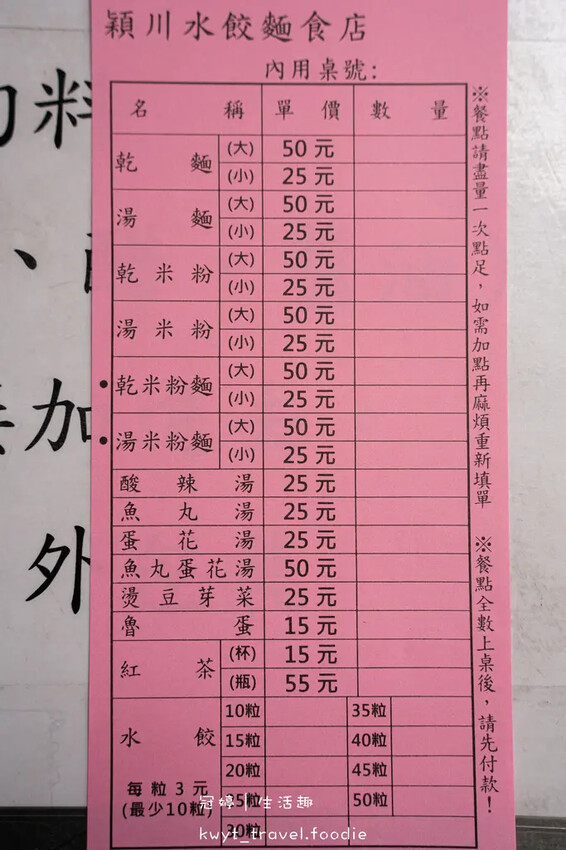 穎川水餃麵食店
內用桌號:
名稱 單價 數量
乾麵 (大) 50元
(小) 25元
湯麵 (大) 50元
(小) 25元
乾米粉 (大) 50元
(小) 25元
湯米粉 (大) 50元
(小) 25元
乾米粉麵 (大) 50元
(小) 25元
湯米粉麵 (大) 50元
(小) 25元
酸辣湯 25元
魚丸湯 25元
蛋花湯 25元
魚丸蛋花湯 50元
燙豆芽菜 25元
魯蛋 15元
紅茶 (杯) 15元
(瓶) 55元
水餃
每粒3元
(最少10粒)
10粒 35粒
15粒 40粒
20粒 45粒
25粒 50粒
30粒
※餐點請盡量一次點足,如需加點再麻煩重新填單
※餐點全數上桌後,請先付款!
料
、
加
外
冠婷|生活趣
kwyt_travel.foodie